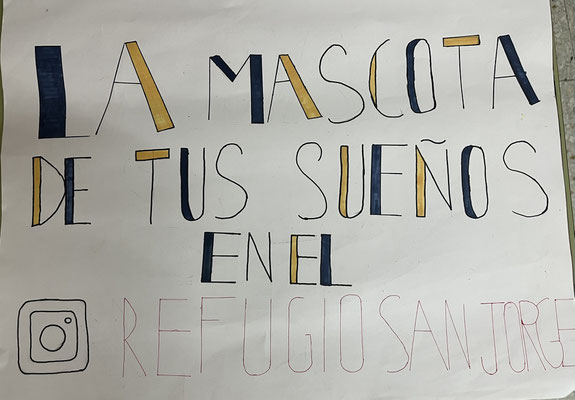 LA MASCOTA
DE TUS SUEÑOS
EN EL
REFUGIO SAN JORGE